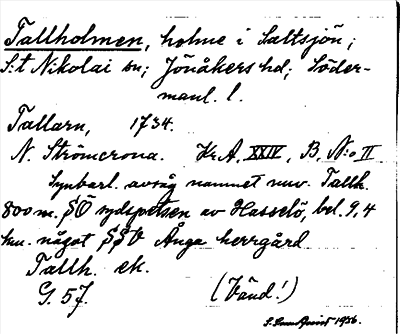 Tallholmen, holme i Saltsjön;
S:t Nikolai sn; Jönåkers hd; Söder-
manl. l.
Tallarn, 1734.
N. Strömcrona. Kr.A, XXIV, B, N:o II
Synbarl. avsåg namnet nuv. Tallh.
800 m. SÖ sydspetsen av Hasselö, bel. 9,4
km. något SSV Ånga herrgård
Tallh. ek.
G. 57. (Vänd!)
S. Lundqvist 1936.